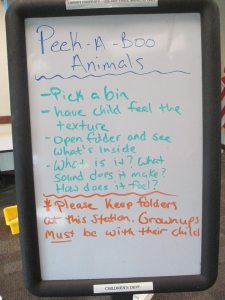 Peek-A-Boo
Animals
- Pick a bin
- have child feel the
texture
- Open folder and see
what's inside
- What is it? What
sound does it make?
How does it feel?
* Please keep folders
at this station. Grownups
Must be with their child
CHILDREN'S DEPT.